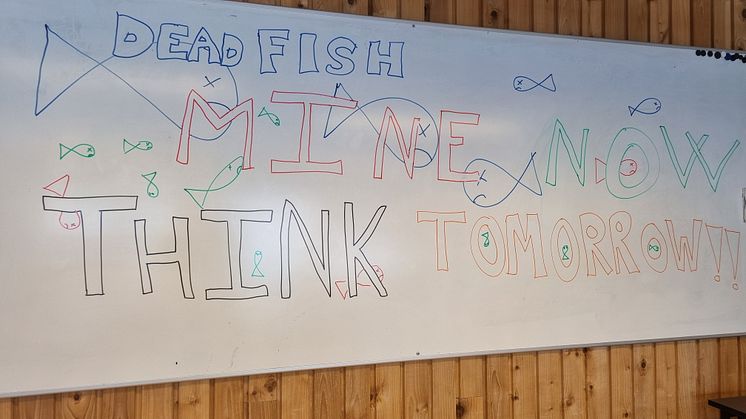 DEAD FISH
MINE NOW
THINK TOMORROW!!